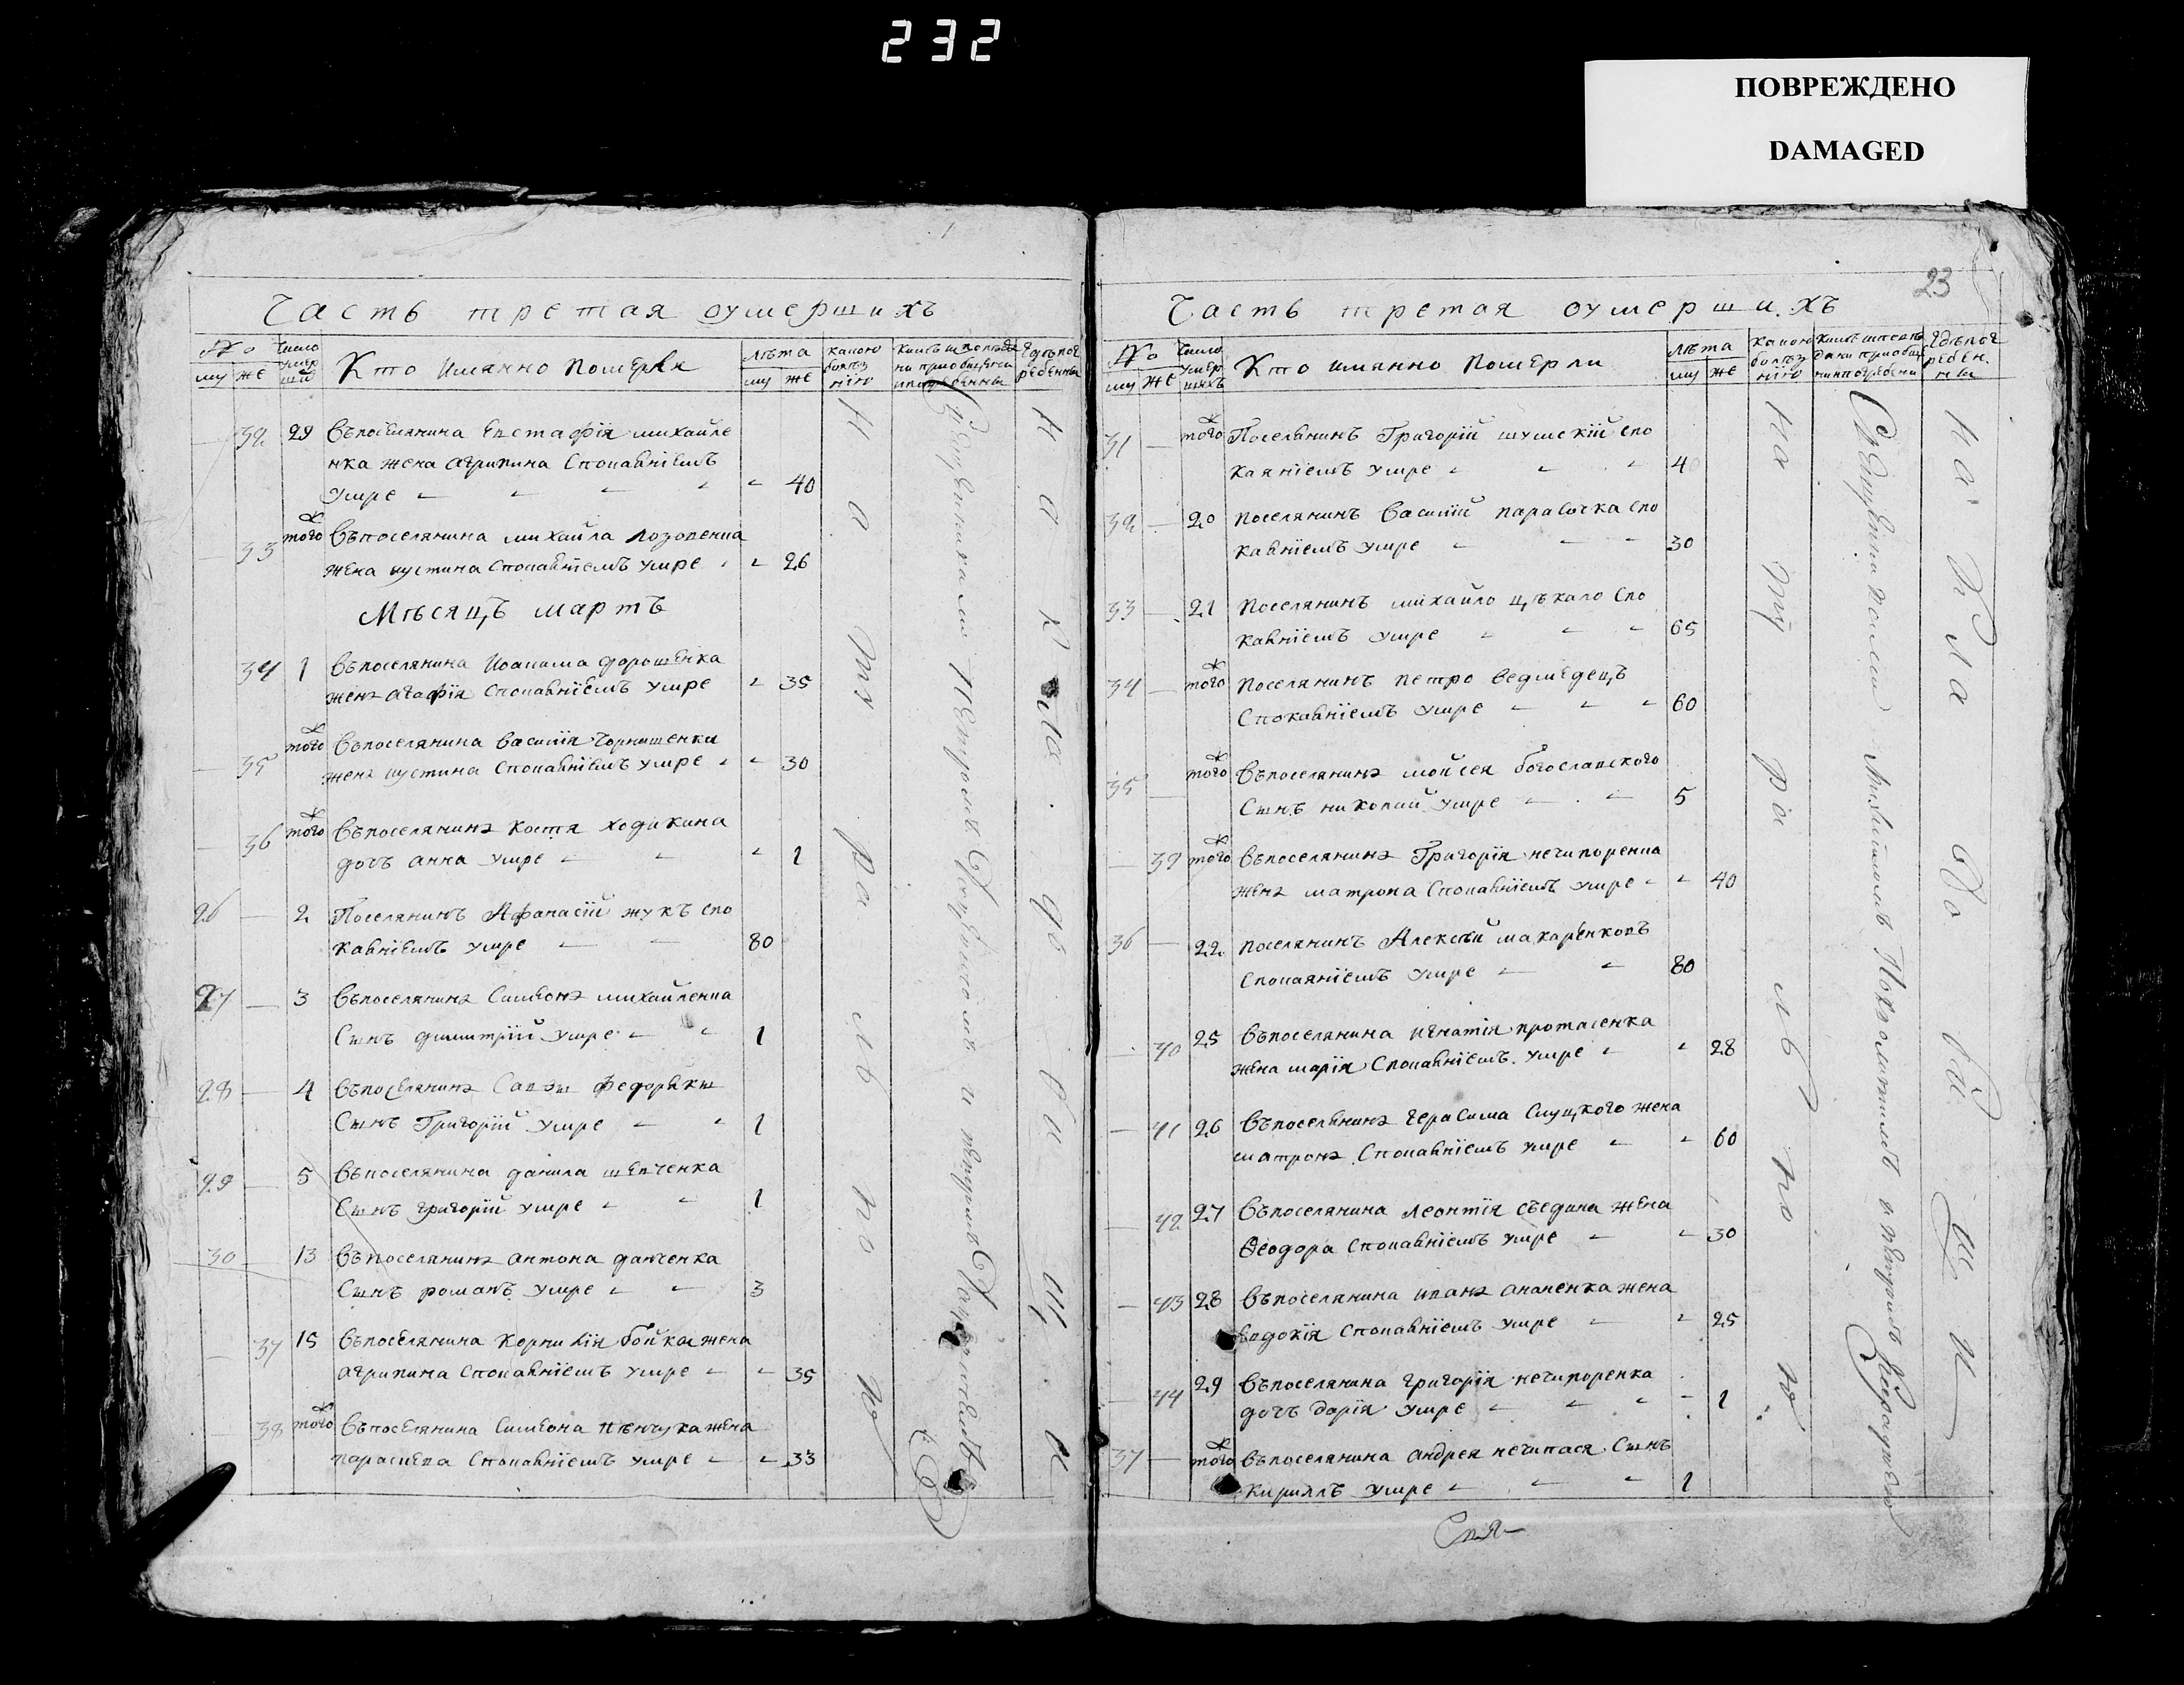 232
ПОВРЕЖДЕНО
DAMAGED
Часть третая оумершихъ
№
Число умер ший
Кто Имянно Померли
лѣта
какою болѣз нію
Гдѣ пог ребенны
му же
му же
32 29 Въпоселянина Евстафія михайле
нка жена Агрипина Спокаяніемъ
Умре 40
33 того ж Въпоселянина михайла лозовенка
жена иустина Спокаяніемъ умре 26
Мѣсяцъ мартъ
34 1 Въпоселянина Иоакима дорошенка
жена агафія Спокаяніемъ умре 35
35 того ж Въпоселянина василія Чорнишенка
жена иустина Спокаяніемъ умре 30
36 того ж Въпоселянина костя ходикина
дочъ анна умре 1
26 2 Поселянинъ Афанасій жукъ спо
каяніемъ умре 80
27 3 Въпоселянина Симеона михайленка
Сынъ димитрій умре 1
28 4 Въпоселянина Савы
Сынъ Григорій умре 1
29 5 Въпоселянина данила шевченка
Сынъ григорій умре 1
30 13 Въпоселянина антона данченка
Сынъ романъ умре 3
37 15 Въпоселянина Корнилія бойка жена
агрипина Спокаяніемъ умре 35
38 того ж Въпоселянина Симеона жена
параскева Спокаяніемъ умре 33
На ту ра лъ но ю
На Кла до ви щи
23
Часть третая оумершихъ
№
Число умер шихъ
Кто имянно Померли
лѣта
какою болѣз нію
Гдѣ пог ребен. ны
му же
му же
31 того ж Поселянинъ Григорій шумскій спо
каяніемъ умре 40
32 20 поселянинъ Василій парасочка спо
каяніемъ умре 30
33 21 поселянинъ михайло цѣкало спо
каяніемъ умре 65
34 того ж поселянинъ петро ведмедецъ
Спокаяніемъ умре 60
35 того ж Въпоселянина мойсея богославского
Сынъ николай умре 5
39 того ж Въпоселянина Григорія нечипоренка
жена матрона Спокаяніемъ умре 40
36 22 поселянинъ Алексѣй макаренковъ
Спокаяніемъ умре 80
40 25 Въпоселянина игнатія протасенка
жена марія Спокаяніемъ умре 28
41 26 Въпоселянина герасима Слуцкого жена
матрона Спокаяніемъ умре 60
42 27 Въпоселянина леонтія съедина жена
Феодора Спокаяніемъ умре 30
43 28 Въпоселянина ивана ананенка жена
Евдокія Спокаяніемъ умре 25
44 29 Въпоселянина григорія нечипоренка
дочъ дарія умре 1
37 того ж Въпоселянина андрея нечитася Сынъ
кириллъ умре 1
На ту ра лъ но ю
На Кла до ви щи